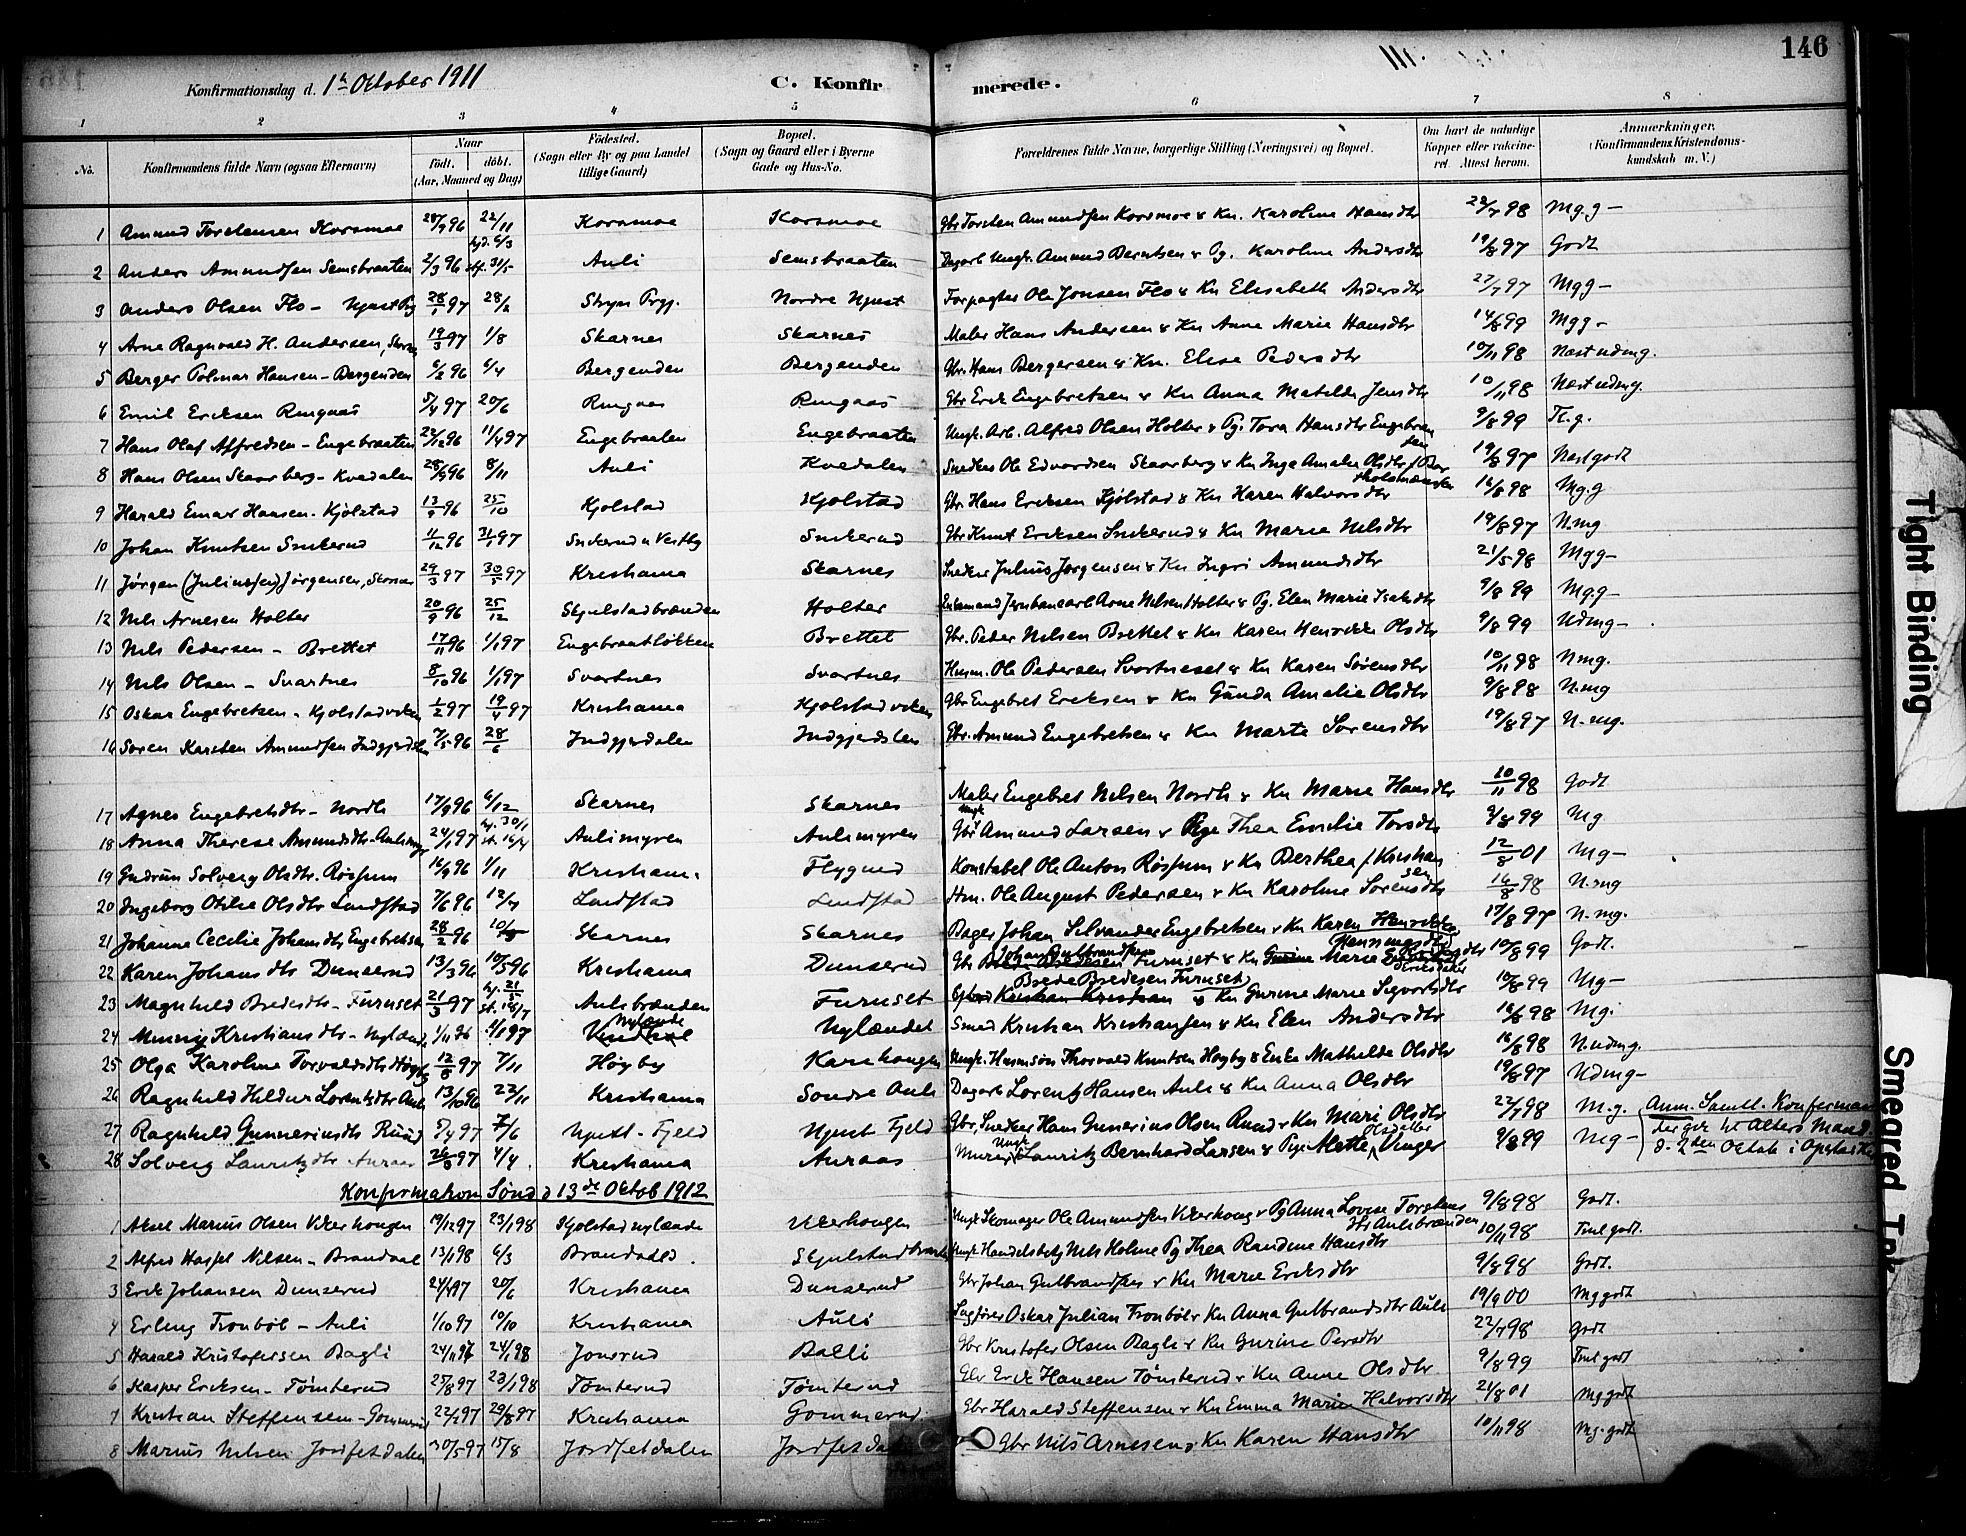 146
Konfirmationsdag d. 1ste October 1911
C. Konfirmerede.
1 2 3 4 5 6 7 8
No. Konfirmandens fulde Navn (ogsaa Efternavn) Naar født. døbt. (Aar, Maaned og Dag) Fødested. (Sogn eller By og paa Landet tillige Gaard) Bopæl. (Sogn og Gaard eller i Byerne Gade og Hus-No. Forældrenes fulde Navne, borgerlige Stilling (Næringsvei) og Bopæl. Om havt de naturlige Kopper eller vakcineret. Attest herom. Anmærkninger. (Konfirmandens Kristendomskundskab m. V.)
1 Amund Torstensen Korsmoe 28/9 96 22/11 Korsmoe Korsmoe Gbr Torsten Amundsen Korsmoe & Kn. Karoline Hansdtr 28/7 98 Mg.g -
2 Anders Amundsen Semsbraaten 2/3 96 hjd. 6/3 st. 31/5 Auli Semsbraaten Dagarb Ungk. Amund Berntsen & Pg. Karoline Andersdtr 19/8 97 Godt
3 Anders Olsen Flo - Njust 28/1 97 28/2 Stryn Prgj. Nordre Njust Forpagter Ole Jonsen Flo & Kn Elisabeth Andersdtr 27/7 97 Mgg -
4 Arne Ragnvald H. Andersen, 19/3 97 1/8 Skarnes Skarnes Maler Hans Andersen & Kn Anne Marie Hansdtr 14/8 99 Mgg -
5 Berger Polmar Hansen - Bergenden 6/2 96 6/4 Bergenden Bergenden Gbr. Hans Bergersen & Kn. Elise Pedersdtr 10/11 98 Næst udmg.
6 Emil Ericksen Rungaas 5/4 97 20/6 Rungaas Rungaas Gbr Erick Engebretsen & Kn Anna Matilde Jensdtr 10/11 98 Næst udmg.
7 Hans Olaf Alfredsen - Engebraaten 22/12 96 11/4 97 Engebraaten Engebraaten Ungk. Arb. Alfred Olsen Holter & Pg. Tora Hansdtr Engebraaten 9/8 99 Tl.g.
8 Hans Olsen Skaarberg - Kvedalen 28/9 96 8/11 Auli Kvedalen Snedker Ole Edvardsen Skaarberg & Kn Inga Amalia Olsdtr 19/8 97 Næst godt
9 Harald Einar Hansen - Kjølstad 13/9 96 25/10 Kjølstad Kjølstad Gbr Hans Ericksen Kjølstad & Kn Karen Halvorsdtr 16/8 98 Mg.g
10 Johan Knutsen Snikerud 11/12 96 31/1 97 Snikerud n Vestby Snikerud Gbr Knut Ericksen Snikerud & Kn Marie Nilsdtr 19/8 97 N.mg
11 Jørgen (Juliussen) Jørgensen, 29/3 97 30/5 97 Kristiania Skarnes Snedker Julius Jørgensen & Kn Ingri Amundsdtr 21/5 98 Mgg -
12 Nils Arnesen Holter 20/9 96 25/12 Skjulstadbrænden Holter Enkemand Jernbanearb Arne Nilsen Holter & Pg. Elen Marie Isaksdtr 9/8 99 Mg.g -
13 Nils Pedersen - Brettet 17/11 96 1/1 97 Engebraatløkken Brettet Gbr. Peder Nilsen Brettet & Kn Karen Henrikke Olsdtr 9/8 99 Udmg -
14 Nils Olsen - Svartnes 8/10 96 1/1 97 Svartnes Svartnes Husm. Ole Pedersen Svartneset & Kn Karen Sørensdtr 10/11 98 N.mg.
15 Oskar Engebretsen - Kjølstadviken 1/2 97 19/4 97 Kristiania Kjølstadviken Gbr Engebret Ericksen & Kn Gunda Amalie Olsdtr 9/8 98 N.mg
16 Søren Karsten Amundsen Indgjerdalen 7/5 96 28/6 Indgjerdalen Indgjerdalen Gbr. Amund Engebretsen & Kn Marte Sørensdtr 19/8 97 N.mg.
17 Agnes Engebretsdtr - Nordli 17/9 96 6/12 Skarnes Skarnes Maler Engebret Nilsen Nordli & Kn Marie Hansdtr 10/11 98 Godt
18 Anna Therese Amundsdtr. 24/1 97 hj. 30/1 st. 16/4 Aulimyren Aulimyren Ungk Gbr Amund Larsen & Pige Thea Emilie Torsdtr 9/8 99 Mg
19 Gudrun Solveig Olsdtr. Røssum 16/9 96 1/11 Kristiania Flygind Konstabel Ole Anton Røssum & Kn Berthea f. Kristiansen 12/8 01 Mg -
20 Ingeborg Otilie Olsdtr Lundstad 7/6 96 12/7 Lundstad Lundstad Hm. Ole August Pedersen & Kn Karoline Sørensdtr 16/8 98 N.mg
21 Johanne Cecilie Johansdtr Engebretsen 28/2 96 10/5 Skarnes Skarnes Bager Johan Silvander Engebretsen & Kn Karen Henrikke Henningsdtr 17/8 97 N.mg.
22 Karen Johansdtr Dunserud 13/3 96 10/5 96 Kristiania Dunserud Gbr Johan Gulbrandsen & Kn Marie 10/8 99 Godt.
23 Magnhild Bredesdtr - Furuset 21/3 97 hj. 21/5 st. 18/7 Aulibrænden Furuset Brede Bredesen Furuset & Kn Gurine Marie Sigvartsdtr 10/8 99 Mg -
24 Minny Kristiansdtr - Nylænde 1/11 96 1/1 97 Nylænde Nylændet Smed Kristian Kristiansen & Kn Elen Andersdtr 16/8 98 Mg.
25 Olga Karoline Torvaldsdtr Høgby 12/8 97 7/11 Høgby Karihaugen Ungk. Husmsøn Thorvald Knutsen Høgby & Enke Mathilde Olsdtr 16/8 98 N.udmg.
26 Ragnhild Hildur Lorentzdtr Auli 13/10 96 22/11 Kristiania Søndre Auli Dagarb Lorentz Hansen Auli & Kn Anna Olsdtr 19/8 97 Udmg -
27 Ragnhild Gunneriusdtr Ruud 5/4 97 7/6 Njustl - Fjeld Njust Fjeld Gbr, Snedker Hans Gunerius Olsen Ruud & Kn Mari Olsdtr 22/7 98 M.g.
28 Solveig Lauritzdtr Auraas 26/3 97 4/4 Kristiania Auraas Murer Ungk Lauritz Bernhard Larsen & Pige Alette Olsdatter Vinger 9/8 99 Mg -
Anm. Samtl. Konfirmander gik til Alters Mand. d. 2den Octob i Opstad K
Konfirmation Sønd d 13de Octob 1912
1 Aksel Marius Olsen Vikerhaugen 19/12 97 23/1 98 Kjølstadnylænde Vikerhaugen Ungk Skomager Ole Amundsen Vikerhaug & Pg Anna Lovise Torstensdtr Aulibrænden 9/8 98 Godt.
2 Alfred Hassel Nilsen - Brandval 13/1 98 6/3 Brandval. Skjulstadbrænden Ungk. Handelsbetj Nils Holme Pg Thea Randine Hansdtr 10/11 98 Temlgodt.
3 Erik Johansen Dunserud 24/4 97 20/6 Kristiania Dunserud Gbr Johan Gulbrandsen & Kn Marie Eriksdtr 9/8 98 Godt.
4 Erling Tronbøl - Auli 1/10 97 10/10 Kristiania Auli Sagfører Oskar Julian Tronbøl & Kn Anna Gulbrandsdtr Auli 19/9 00 Mg godt
5 Harald Kristofersen Bagli 24/11 97 24/1 98 Jonsrud Balli Gbr Kristofer Olsen Bagli & Kn Gurine Persdtr 22/7 98 Godt
6 Kasper Ericksen - Tømterud 25/8 97 23/1 98 Tømterud Tømterud Gbr Erick Hansen Tømterud & Kn Anne Olsdtr 9/8 99 Teml godt
7 Kristian Steffensen - Gommerud 22/2 97 29/8 97 Kristiania Gommerud Gbr Harald Steffensen & Kn Emma Marie Halvorsdtr 21/8 01 Mg godt
8 Marius Nilsen Jordfetdalen 30/5 97 15/8 Jordfetdalen Jordfetdalen Gbr Nils Arnesen & Kn Karen Hansdtr 10/11 98 M.g. godt
Tight Binding
Smeared